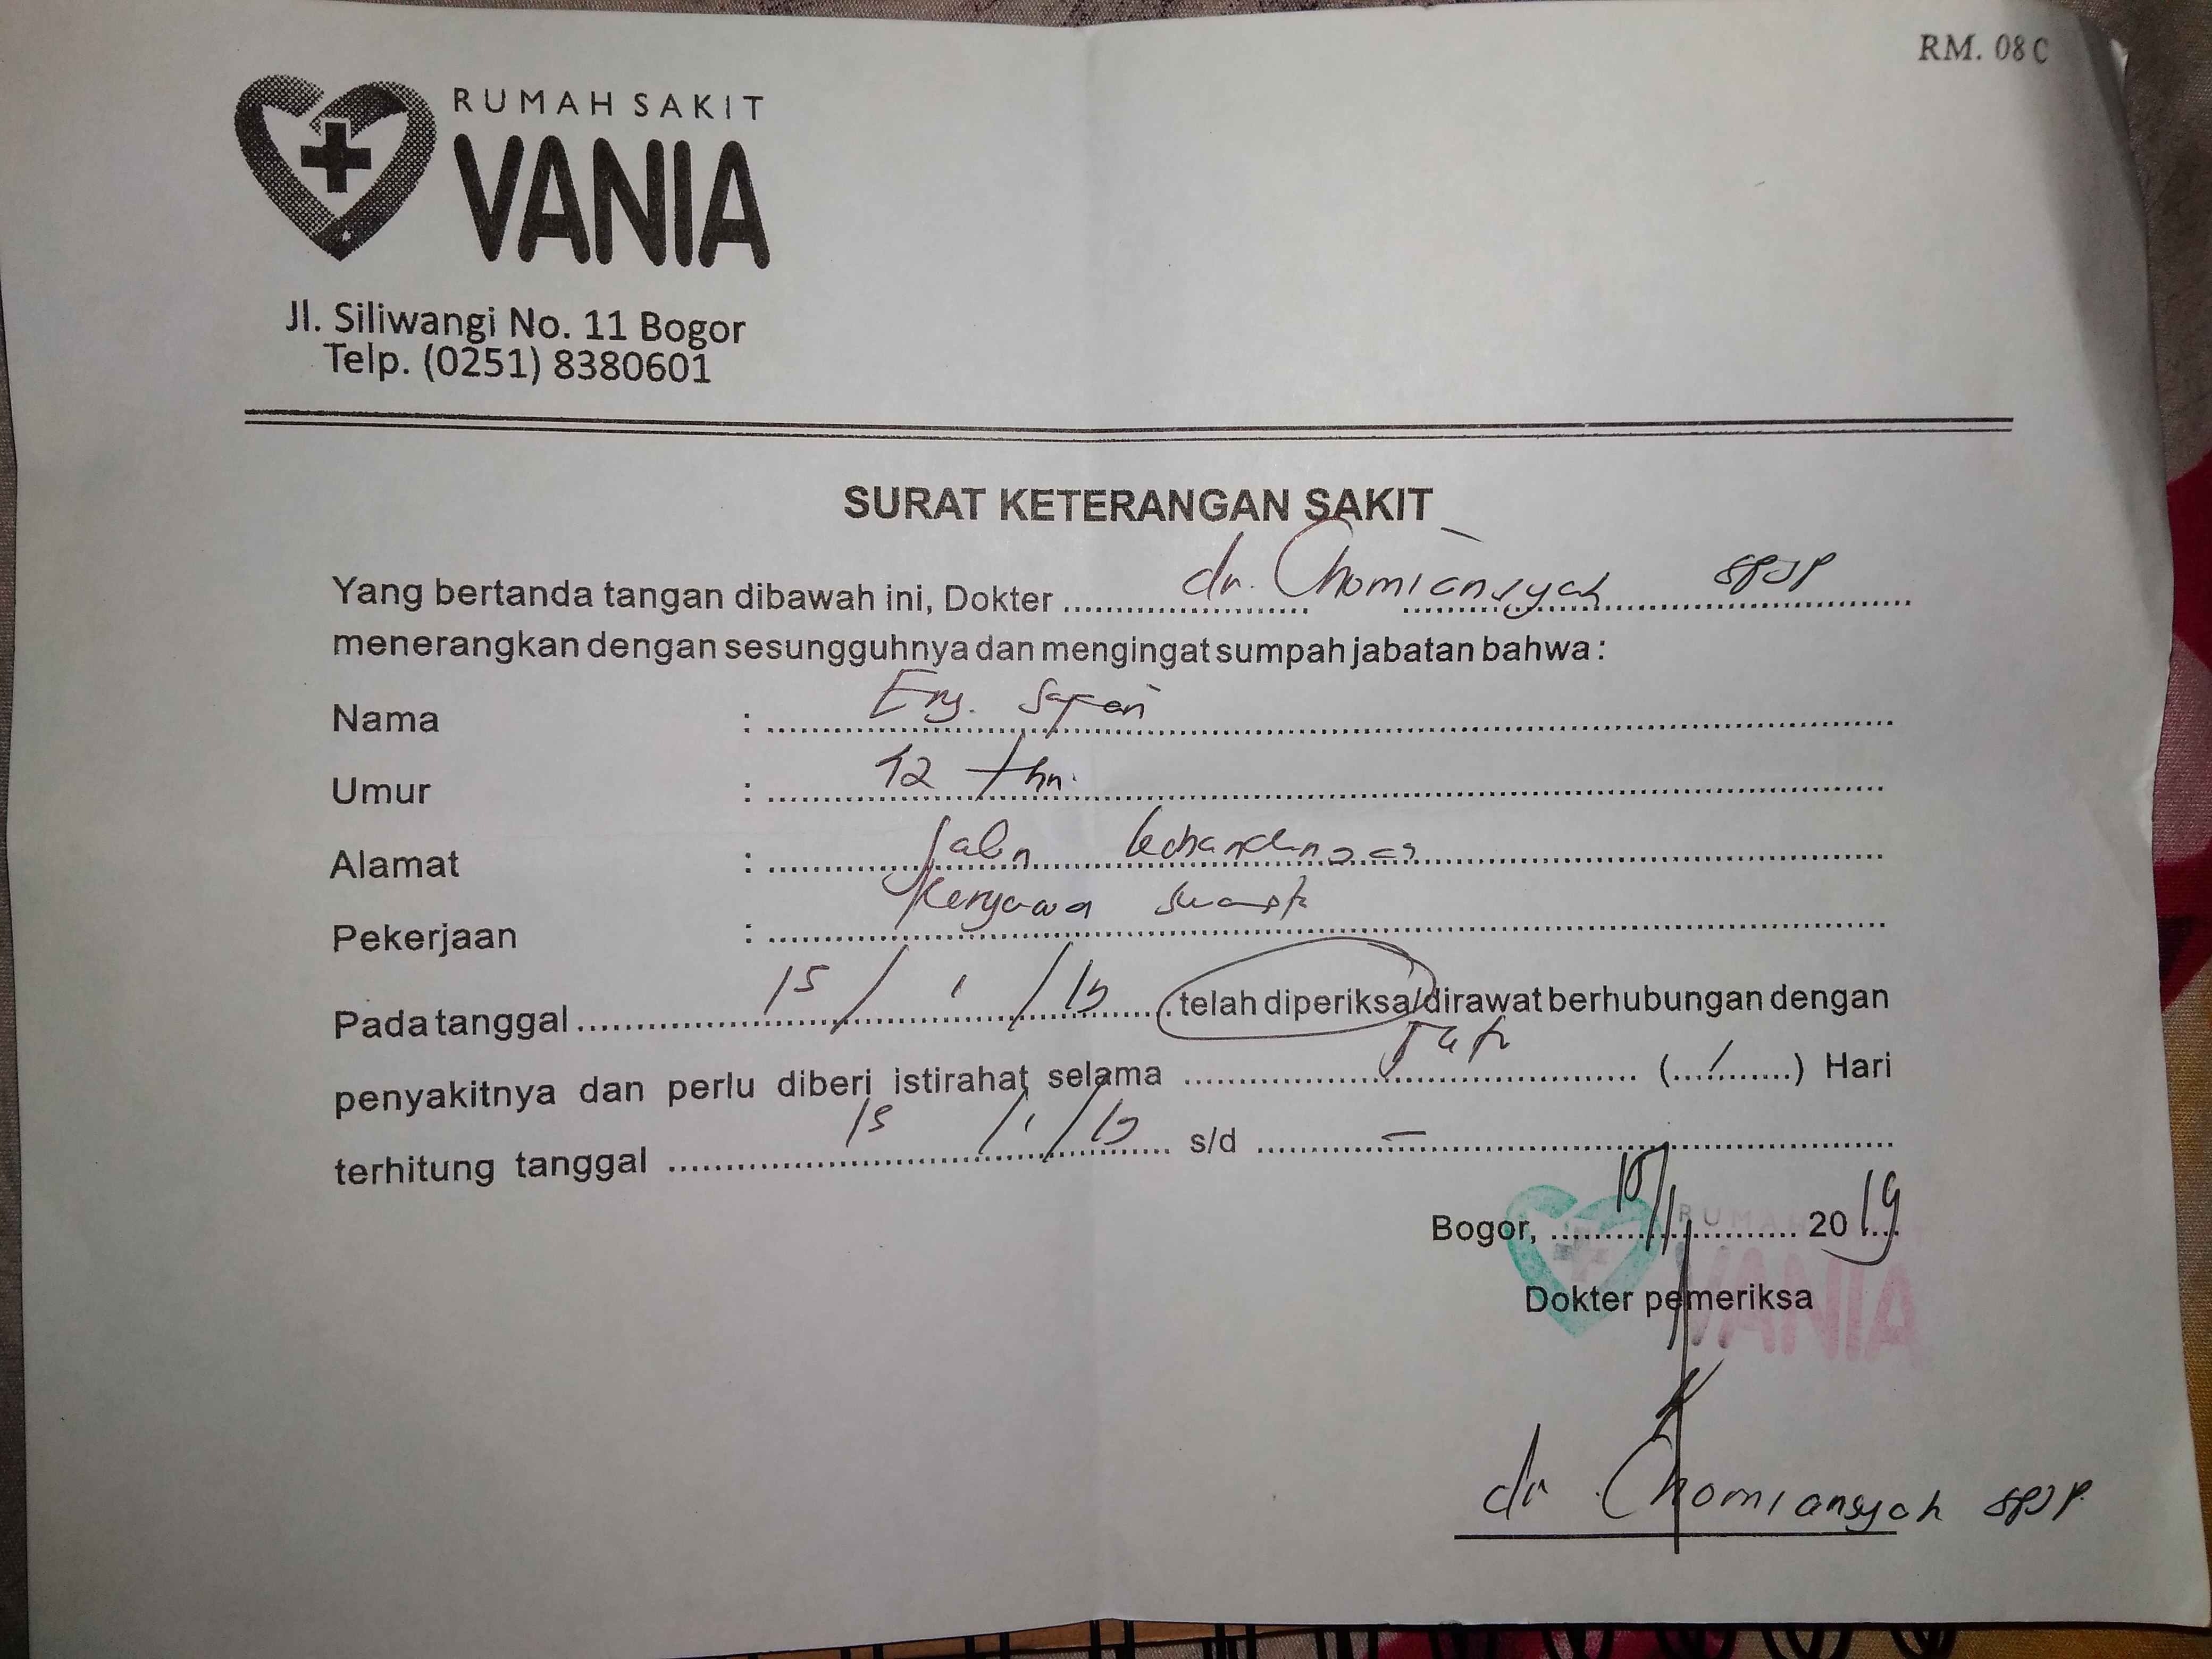 RM. 08 C
RUMAH SAKIT
VANIA
Jl. Siliwangi No. 11 Bogor
Telp. (0251) 8380601
SURAT KETERANGAN SAKIT
Yang bertanda tangan dibawah ini, Dokter dr. Chomiansyah SPJP
menerangkan dengan sesungguhnya dan mengingat sumpah jabatan bahwa :
Nama :
Umur : 12 thn.
Alamat : Jaln
Pekerjaan :
Pada tanggal 15 / 1 / 19 telah diperiksa/dirawat berhubungan dengan
penyakitnya dan perlu diberi istirahat selama (...1...) Hari
terhitung tanggal 15 / 1 / 19 s/d -
Bogor, 2019
RUMAH
VANIA
Dokter pemeriksa
dr Chomiansyah SPJP